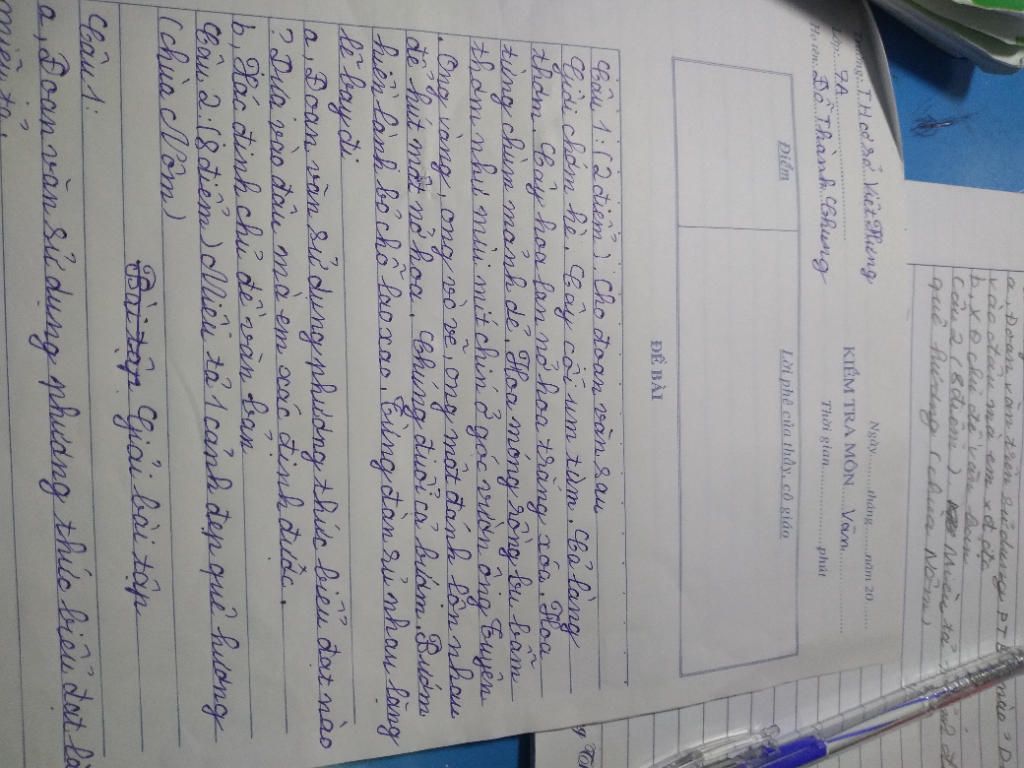 Trường: TH cơ sở Việt Hưng
Lớp: 7A
Họ tên: Đỗ Thành Chung
Ngày........tháng......năm 20......
KIỂM TRA MÔN Văn
Thời gian............phút
Điểm
Lời phê của thầy, cô giáo
ĐỀ BÀI
Câu 1: (2 điểm). Cho đoạn văn sau
Giời chớm hè. Cây cối um tùm. Cả làng
thơm. Cây hoa lan nở hoa trắng xóa. Hoa
từng chùm mảnh dẻ. Hoa móng rồng bụ bẫm
thơm như mùi mít chín ở góc vườn ông Tuyên
. Ong vàng, ong vò vẽ, ong mật đánh lộn nhau
để hút mật ở hoa. Chúng đuổi cả bướm. Bướm
hiền lành bỏ chỗ lao xao. Từng đàn rủ nhau lặng
lẽ bay đi
a, Đoạn văn sử dụng phương thức biểu đạt nào
? Dựa vào đâu mà em xác định được.
b, Xác định chủ đề văn bản
Câu 2: (8 điểm) Miêu tả 1 cảnh đẹp quê hương
(chùa Nôm)
Bài tập Giải bài tập
Câu 1:
a, Đoạn văn sử dụng phương thức biểu đạt là
miêu tả.
a, Đoạn văn trên sử dụng PTBĐ nào? D
vào đâu mà em xđ đc
b, XĐ chủ đề văn bản
Câu 2 (8 điểm) Miêu tả
quê hương (chùa Nôm)